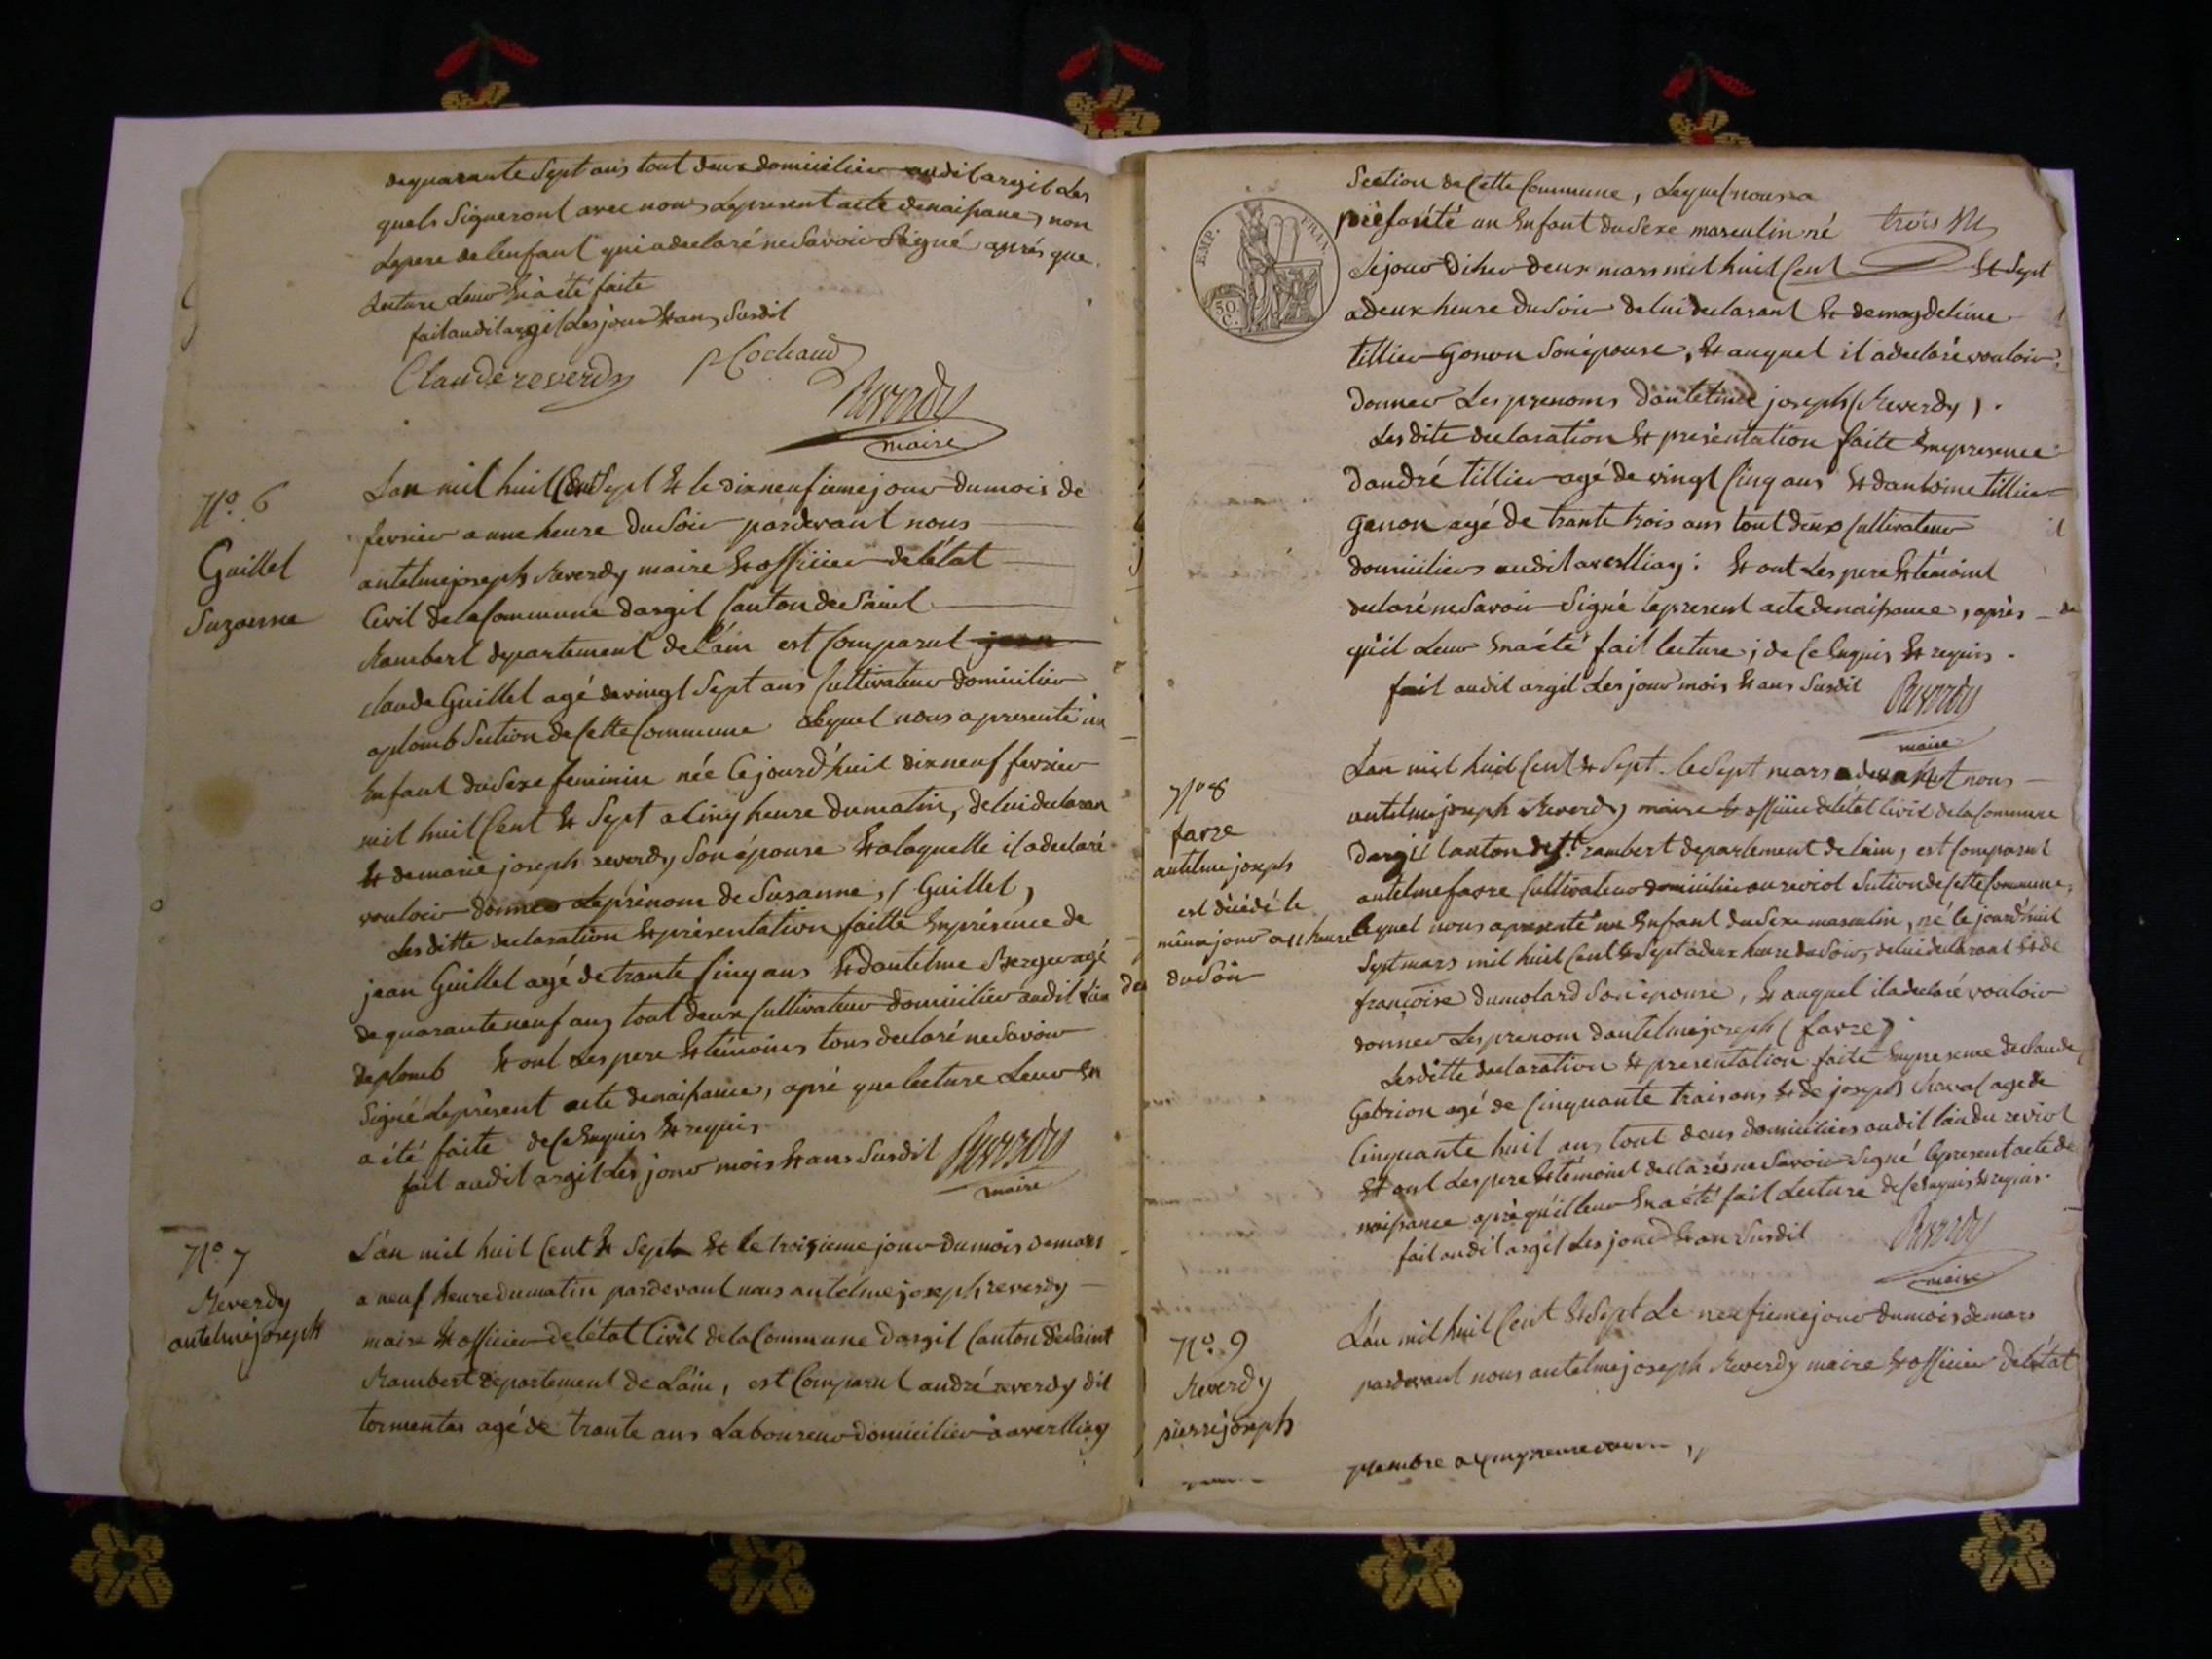 de quarante Sept ans tout deux domicilier audit argil Les
quels Signeront avec nous Le present acte de naissance, non
Le pere de lenfant qui a declaré ne Savoir Signé après que
Lecture Leur En a été faite
fait audit argil Les jour Et an Susdit
Claude reverdy
Reverdy
maire
N.o 6
Guillet
Suzanne
Lan mil huit Cent Sept Et le dix neufieme jour du mois de
fevrier a une heure du Soir pardevant nous
antelme joseph Reverdy maire Et officier de létat
Civil de la Commune dargil Canton de Saint
Rambert departement de L'ain est Comparut
claude Guillet agé de vingt Sept ans Cultivateur domicilier
a plomb Section de Cette Commune Lequel nous a presenté un
Enfant du Sexe feminin née Ce jourd'huit dix neuf fevrier
mil huit Cent Et Sept a Cinq heure du matin, de lui declaran
Et de marie joseph reverdy Son épouse Et a laquelle il a declaré
vouloir donner Le prénom de Susanne, ( Guillet,
Les ditte declaration Et présentation faitte En présence de
jean Guillet agé de trante Cinq ans Et dantelme Berger agé
de quarante neuf ans tout deux Cultivateur domicilier audit Lieu
de plomb Et ont Les pere Et témoins tous declaré ne Savoir
Signé Le présent acte de naissance, apré que lecture Leur En
a été faite de Ce Enquis Et requis
fait audit argil Les jour mois Et ans Susdit
Reverdy
maire
N.o 7
Reverdy
antelme joseph
L'an mil huit Cent Et Sept Et le troisieme jour du mois de mars
a neuf heure du matin pardevant nous antelme joseph reverdy
maire Et officier de létat Civil de la Commune dargil Canton de Saint
Rambert departement de L'ain, est Comparut andré reverdy dit
tormentas agé de trante ans Laboureur domicilier a averlliay
Section de Cette Commune, Lequel nous a
présenté un Enfant du Sexe masculin né
trois
Le jour d'hier deux mars mil huit Cent Et Sept
a deux heure du Soir de lui declarant Et de magdeleine
tillier Gonon Son épouse, Et auquel il a declaré vouloir
donner Les prenoms dantelme joseph ( Reverdy ).
Les dite declaration Et présentation faite En presence
dandré tillier agé de vingt Cinq ans Et dantoine tillier
gonon agé de trante trois ans tout deux Cultivateur
domicilier audit averlliay: Et ont Les pere Et témoint
declaré ne Savoir Signé le present acte de naissance, après
qu'il Leur En a été fait lecture; de Ce Enquis Et requis.
fait audit argil Les jour mois Et ans Susdit
Reverdy
maire
EMP. FRAN.
50 C.
N.o 8
favre
antelme joseph
est décédé le
même jour a 11 heure
du Soir
Lan mil huit Cent Et Sept. le Sept mars devant nous
antelme joseph Reverdy maire Et officier de létat Civil de la Commune
dargil Canton de St. rambert departement de lain, est Comparut
antelme favre Cultivateur domicilier au reviol Section de Cette Commune,
Lequel nous a presenté un Enfant du Sexe masculin, né le jourd'huit
Sept mars mil huit Cent Et Sept a deux heure du Soir, de lui declarant Et de
françoise dumolard Son épouse, Et auquel il a declaré vouloir
donner Les prenom dantelme joseph ( favre ).
Les ditte declaration Et presentation faite En presence de claude
Gabrion agé de Cinquante trais ans Et de joseph Chaval agé de
Cinquante huit ans tout deux domiciliers audit lieu du reviol
Et ont Les pere Et témoint declarés ne Savoir Signé le present acte de
naissance aprè qu'il leur En a été fait Lecture de Ce Enquis Et requis.
fait audit argil Les jour Et an Susdit
Reverdy
maire
N.o 9
Reverdy
pierre joseph
L'an mil huit Cent Et Sept Le neufieme jour du mois de mars
pardevant nous antelme joseph Reverdy maire Et officier de létat